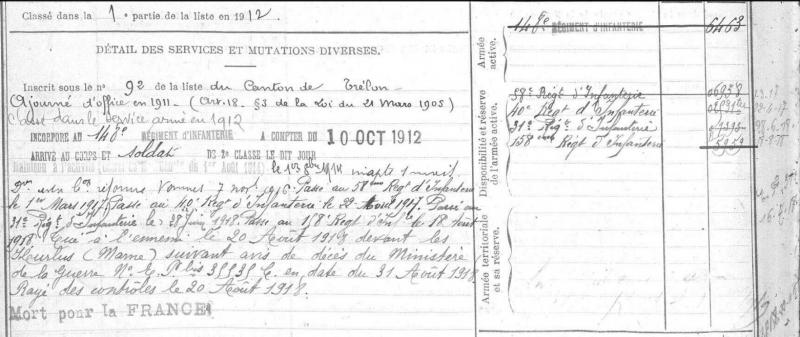 Classé dans la 1e partie de la liste en 1912.
DÉTAIL DES SERVICES ET MUTATIONS DIVERSES.
Inscrit sous le n° 92 de la liste du Canton de Trélon
Ajourné d'office en 1911 - (Art. 18 - §3 de la Loi du 21 Mars 1905)
Classé dans le service armé en 1912
INCORPORÉ AU 148e RÉGIMENT D'INFANTERIE A COMPTER DU 10 OCT 1912
ARRIVÉ AU CORPS ET soldat DE 2e CLASSE LE DIT JOUR
Maintenu à l'activité 1er Août 1914) le 1er 8bre 1914 inapte 1 mois
réforme Vannes 7 nov. 1916 Passe au 58ème Régt d'Infanterie
le 1er Mars 1917 Passe au 40e Régt d'Infanterie le 22 Août 1917. Passé au
31e Régt d'Infanterie le 28 Juin 1918 Passe au 158e Régt d'Inf le 18 Août
1918 Tué à l'ennemi le 20 Août 1918 devant les
Hurlus (Marne) suivant avis de décès du Ministère
de la Guerre N° en date du 31 Août 1918
Rayé des contrôles le 20 Août 1918.
Mort pour la FRANCE
Armée active.
148e RÉGIMENT D'INFANTERIE 6463
Disponibilité et réserve de l'armée active.
58e Régt d'Infanterie
40e Régt d'Infanterie
31e Régt d'Infanterie
158e Régt d'Infanterie
Armée territoriale et sa réserve.